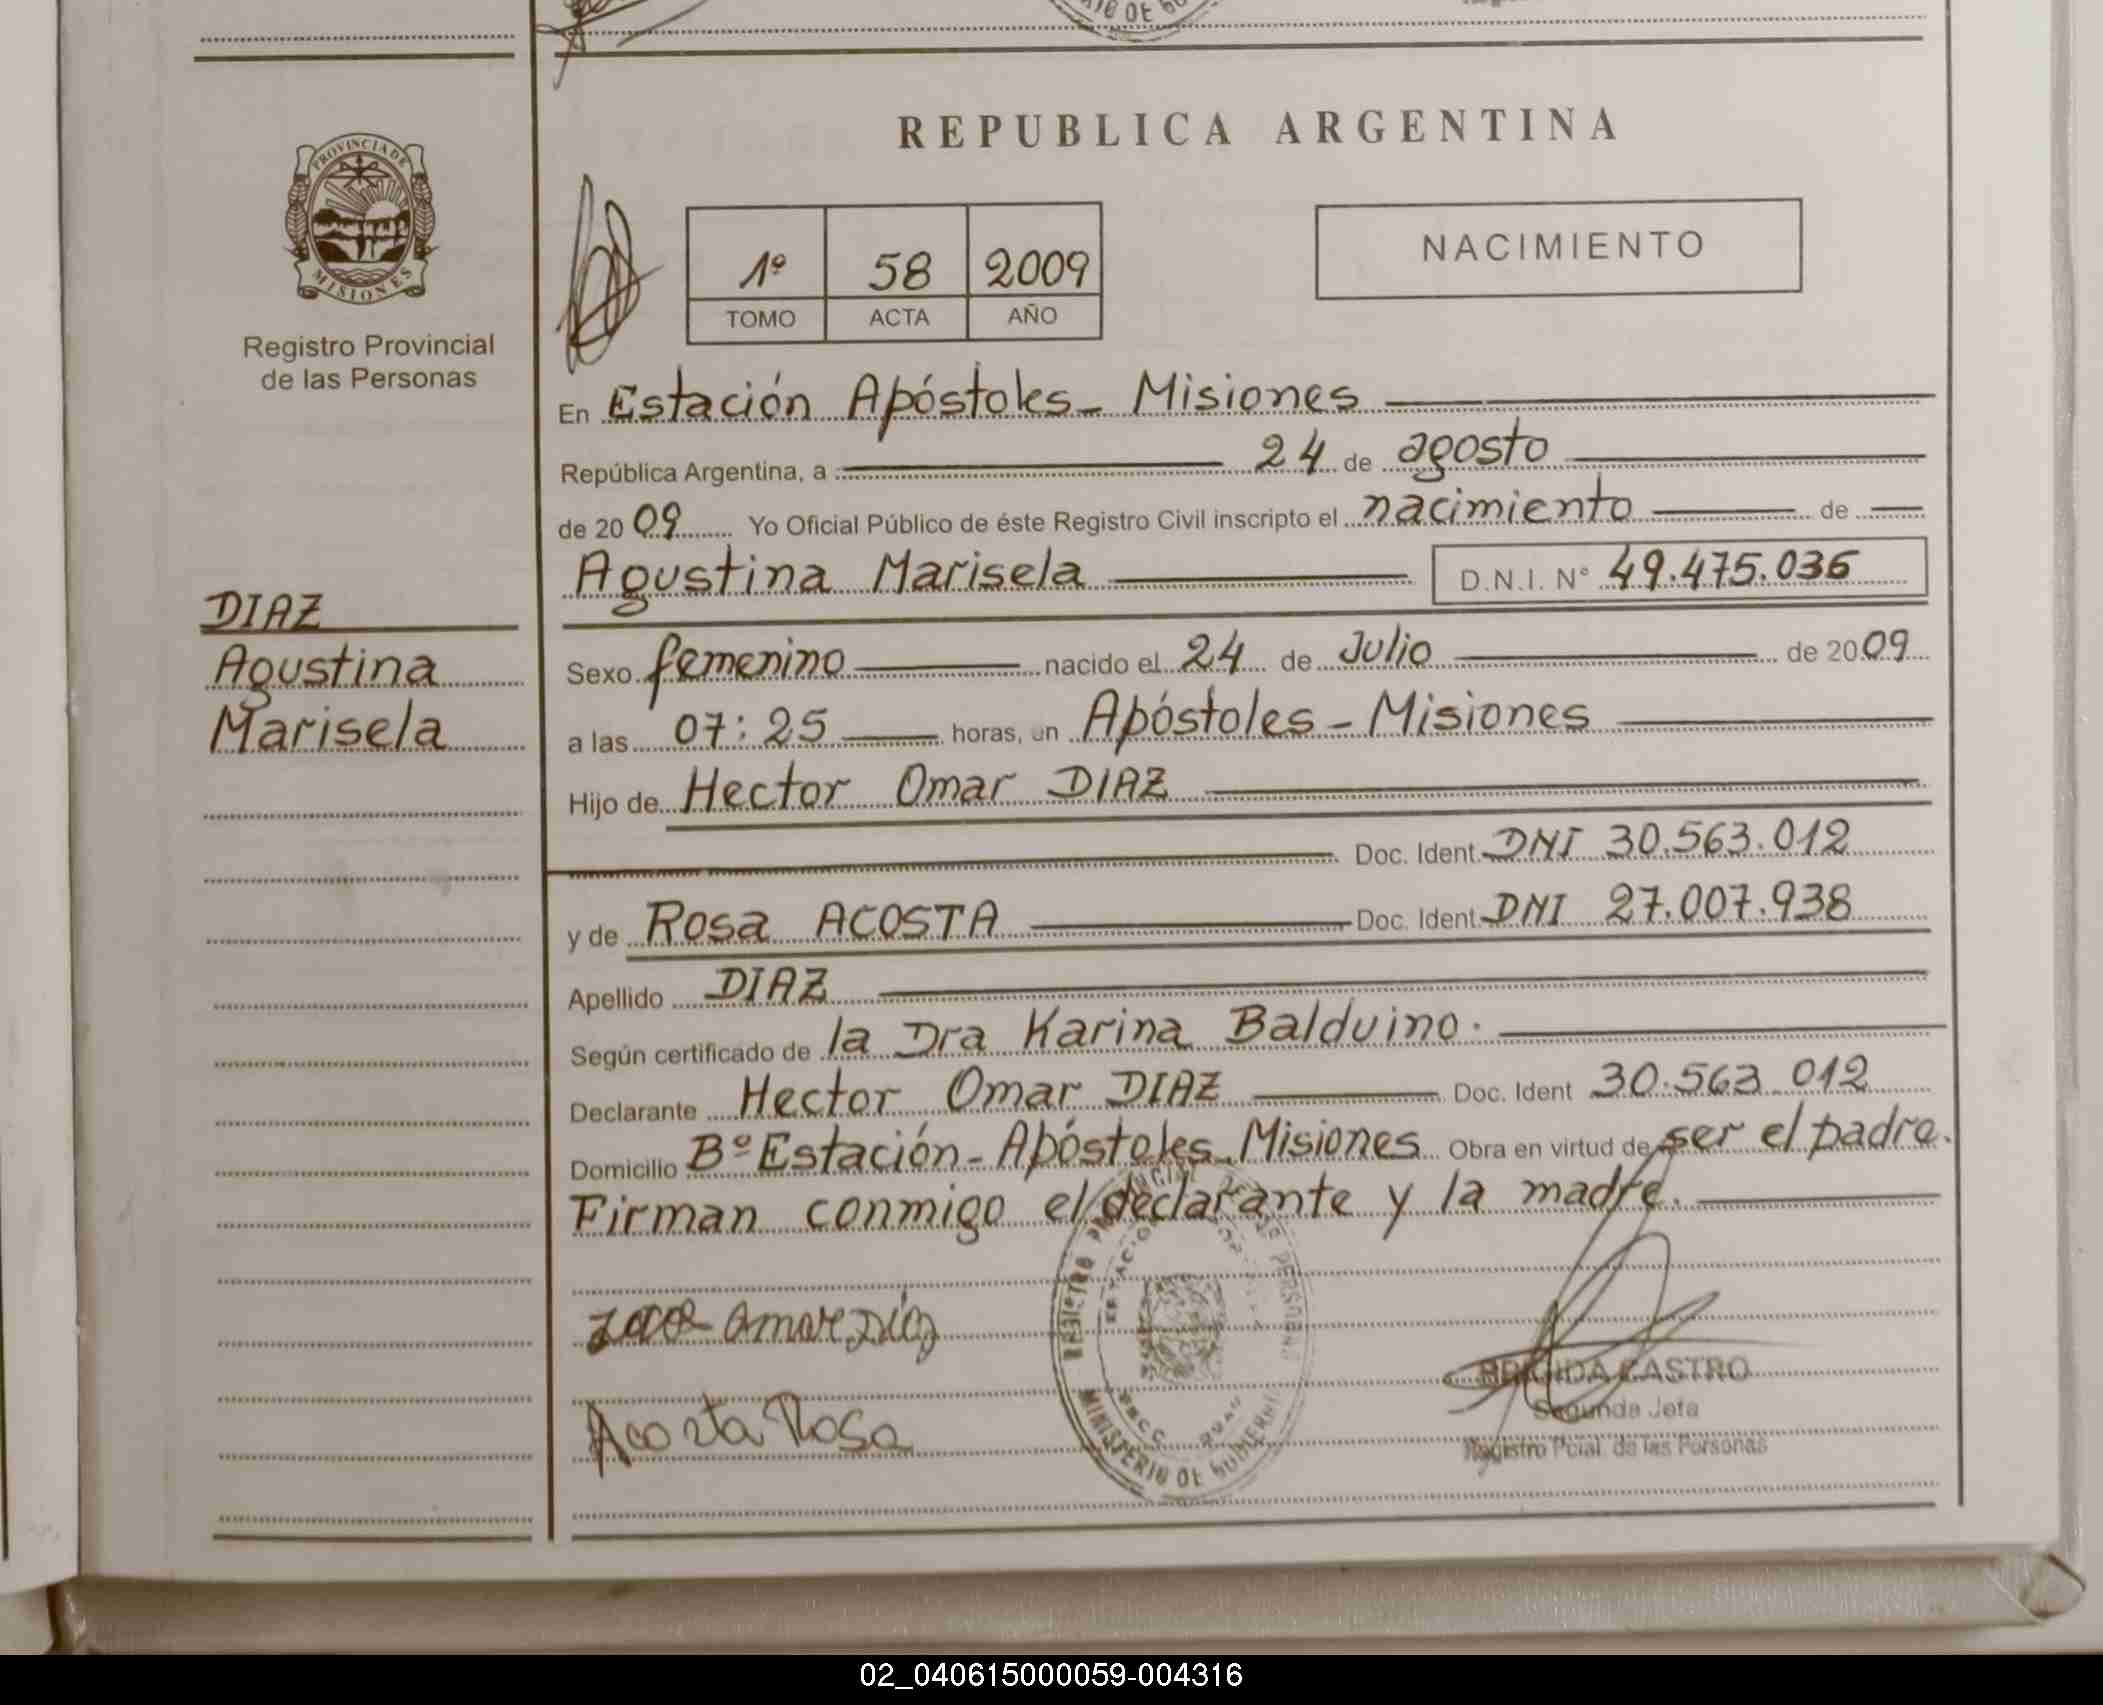 REPUBLICA ARGENTINA
PROVINCIA DE
MISIONES
Registro Provincial
de las Personas
1º 58 2009
TOMO ACTA AÑO
NACIMIENTO
En Estación Apóstoles - Misiones
República Argentina, a 24 de agosto
de 2009 Yo Oficial Público de éste Registro Civil inscripto el nacimiento de
Agustina Marisela D.N.I. Nº 49.475.036
DIAZ
Agustina
Marisela
Sexo femenino nacido el 24 de Julio de 2009
a las 07:25 horas, en Apóstoles - Misiones
Hijo de Hector Omar DIAZ
Doc. Ident. DNI 30.563.012
y de Rosa ACOSTA Doc. Ident. DNI 27.007.938
Apellido DIAZ
Según certificado de la Dra Karina Balduino.
Declarante Hector Omar DIAZ Doc. Ident 30.563.012
Domicilio Bº Estación - Apóstoles - Misiones Obra en virtud de ser el padre.
Firman conmigo el declarante y la madre.
Omar Díaz
Acosta Rosa
REGISTRO PERSONAS
MINISTERIO DE GOBIERNO
BRIGIDA CASTRO
Segunda Jefa
Registro Pcial. de las Personas
02_040615000059-004316